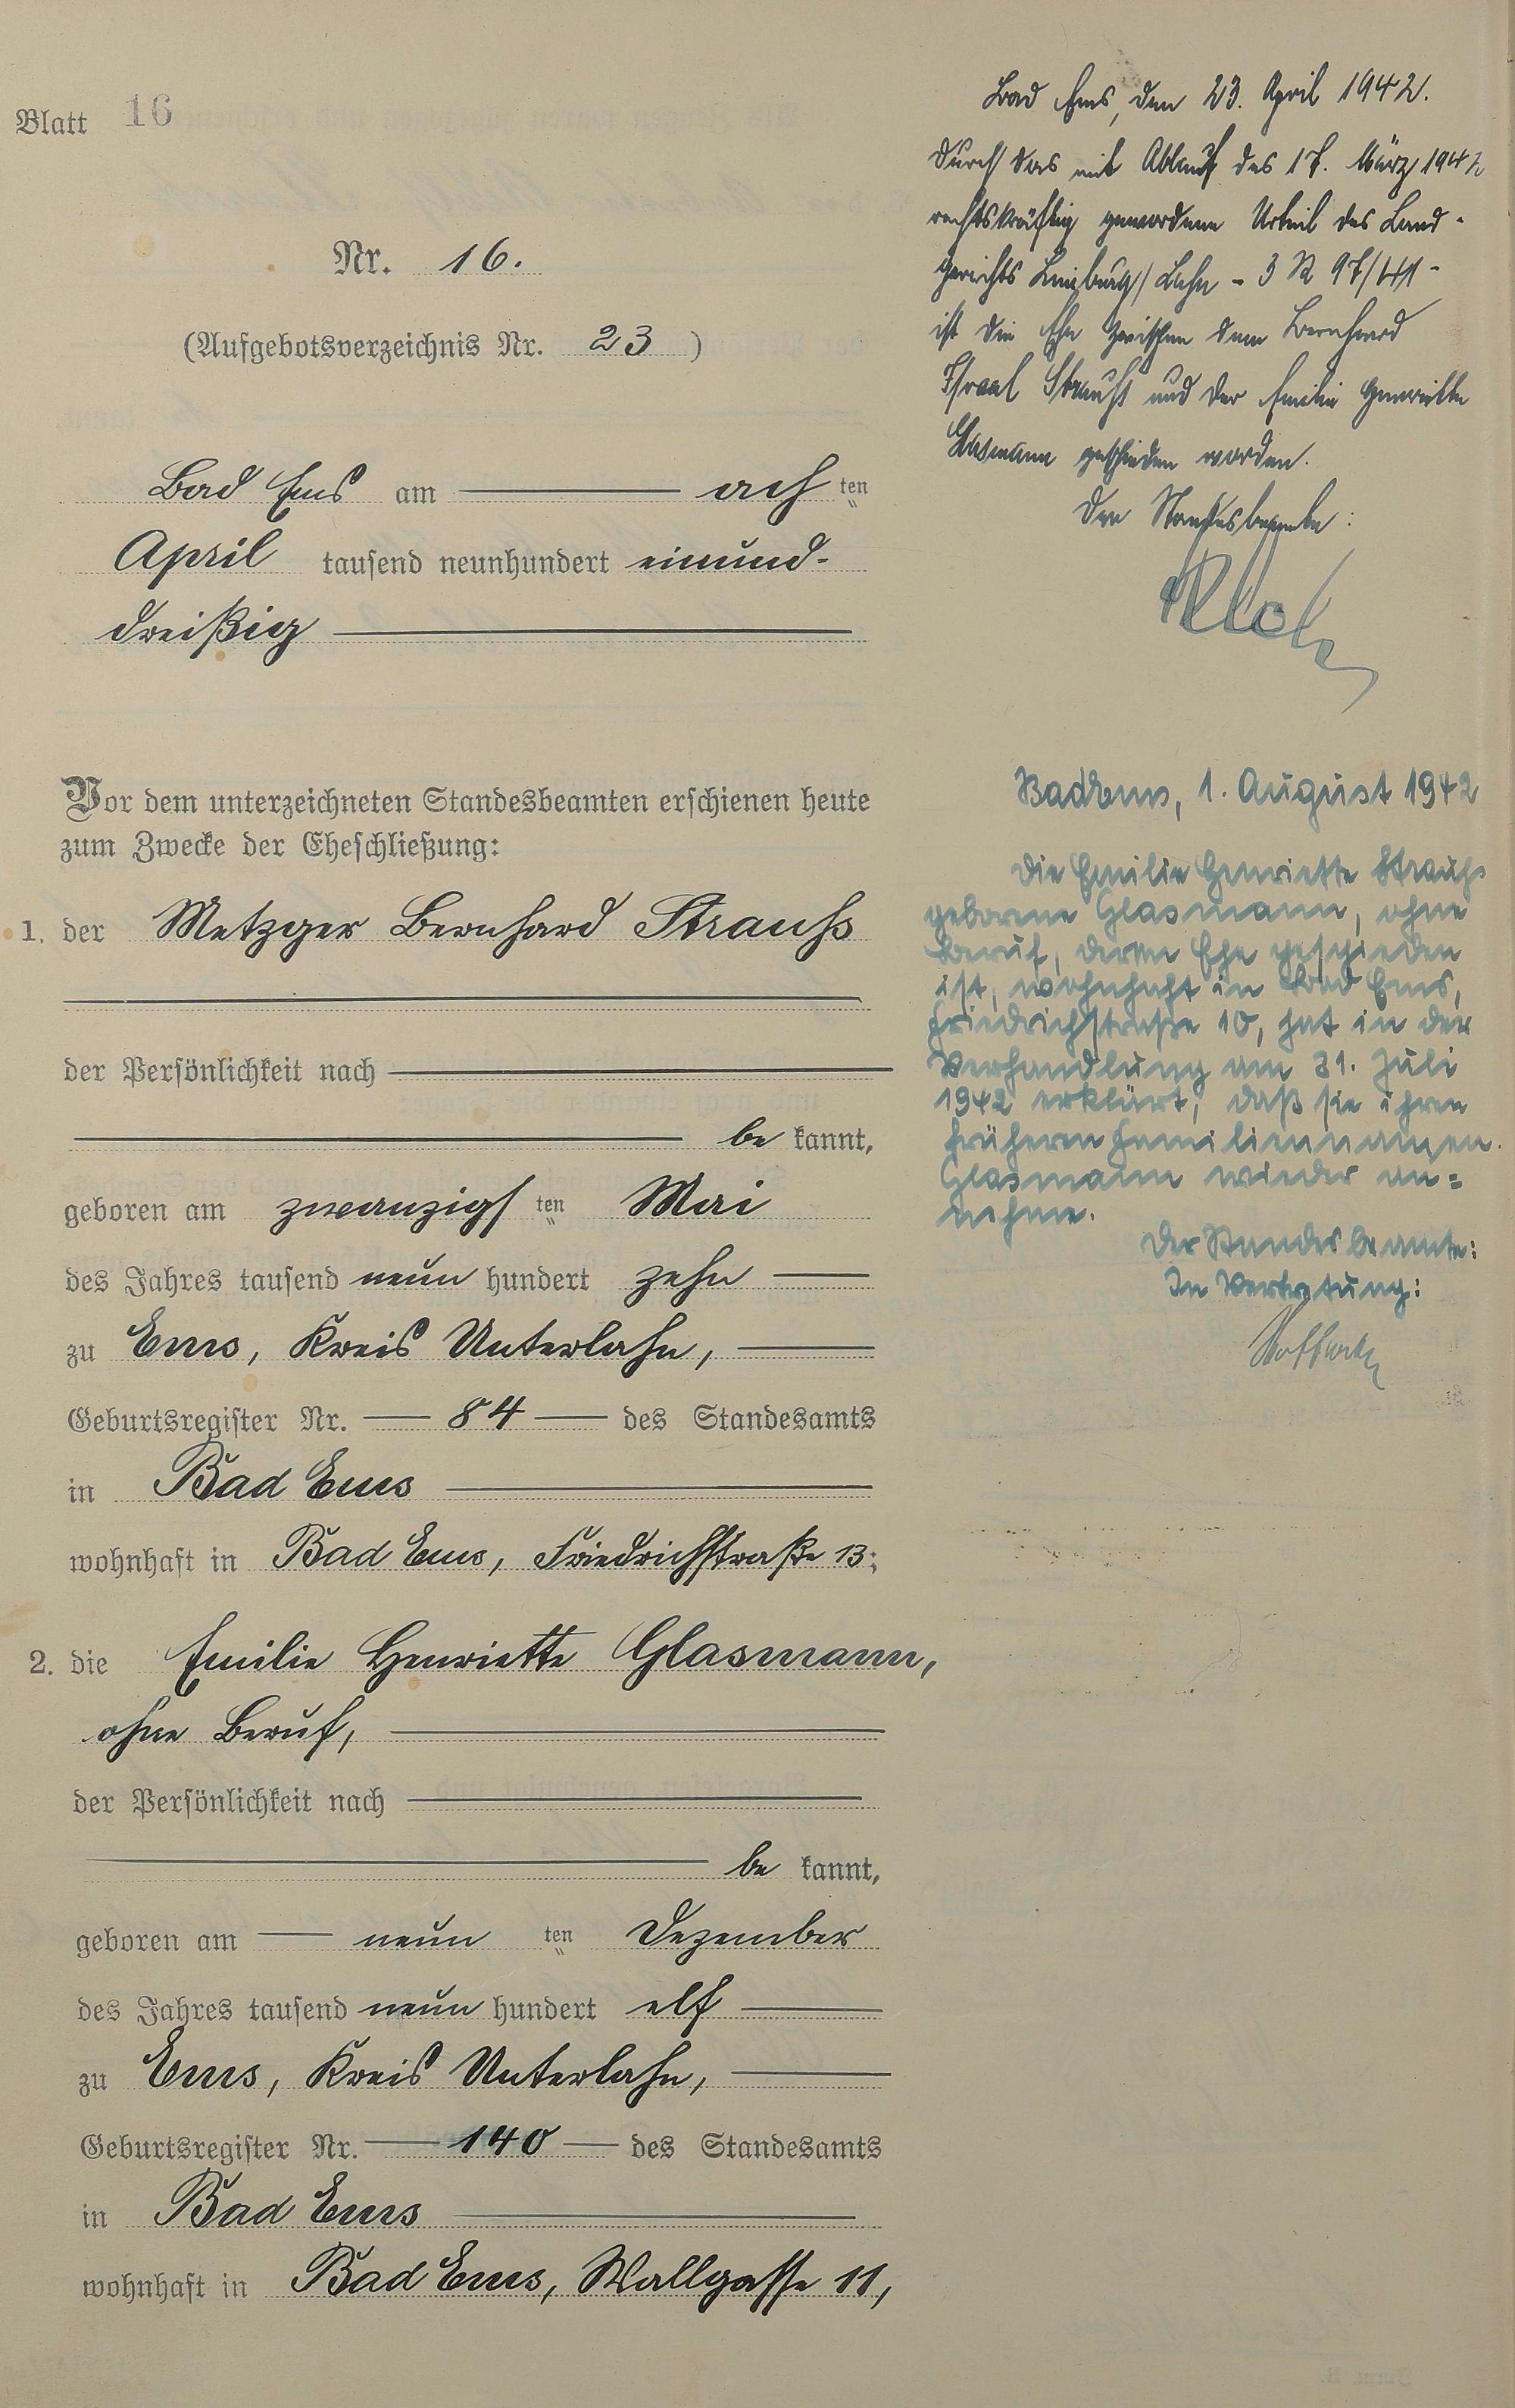 Blatt 16
Nr. 16.
(Aufgebotsverzeichnis Nr. 23)
Bad Ems am ach ten
April tausend neunhundert einund-
dreißig
Vor dem unterzeichneten Standesbeamten erschienen heute
zum Zwecke der Eheschließung:
1. der Metzger Bernhard Strauß
der Persönlichkeit nach
be kannt,
geboren am zwanzigs ten Mai
des Jahres tausend neun hundert zehn
zu Ems, Kreis Unterlahn,
Geburtsregister Nr. 84 des Standesamts
in Bad Ems
wohnhaft in Bad Ems, Friedrichstraße 13;
2. die Emilie Henriette Glasmann,
ohne Beruf,
der Persönlichkeit nach
be kannt,
geboren am neun ten Dezember
des Jahres tausend neun hundert elf
zu Ems, Kreis Unterlahn,
Geburtsregister Nr. 140 des Standesamts
in Bad Ems
wohnhaft in Bad Ems, Wallgasse 11,
Bad Ems, den 23. April 1942.
Durch das mit Ablauf des 17. März 1942
rechtskräftig gewordene Urteil des Land-
gerichts Limburg/Lahn - 3 R 97/41 -
ist die Ehe zwischen dem Bernhard
Israel Strauß und der Emilie Henriette
Glasmann geschieden worden.
Der Standesbeamte:
Bad Ems, 1. August 1942
Die Emilie Henriette Strauß
geborene Glasmann, ohne
Beruf, deren Ehe geschieden
ist, wohnhaft in Bad Ems,
Friedrichstraße 10, hat in der
Verhandlung am 31. Juli
1942 erklärt, daß sie ihren
früheren Familiennamen
Glasmann wieder an=
nehme.
Der Standesbeamte:
In Vertretung: